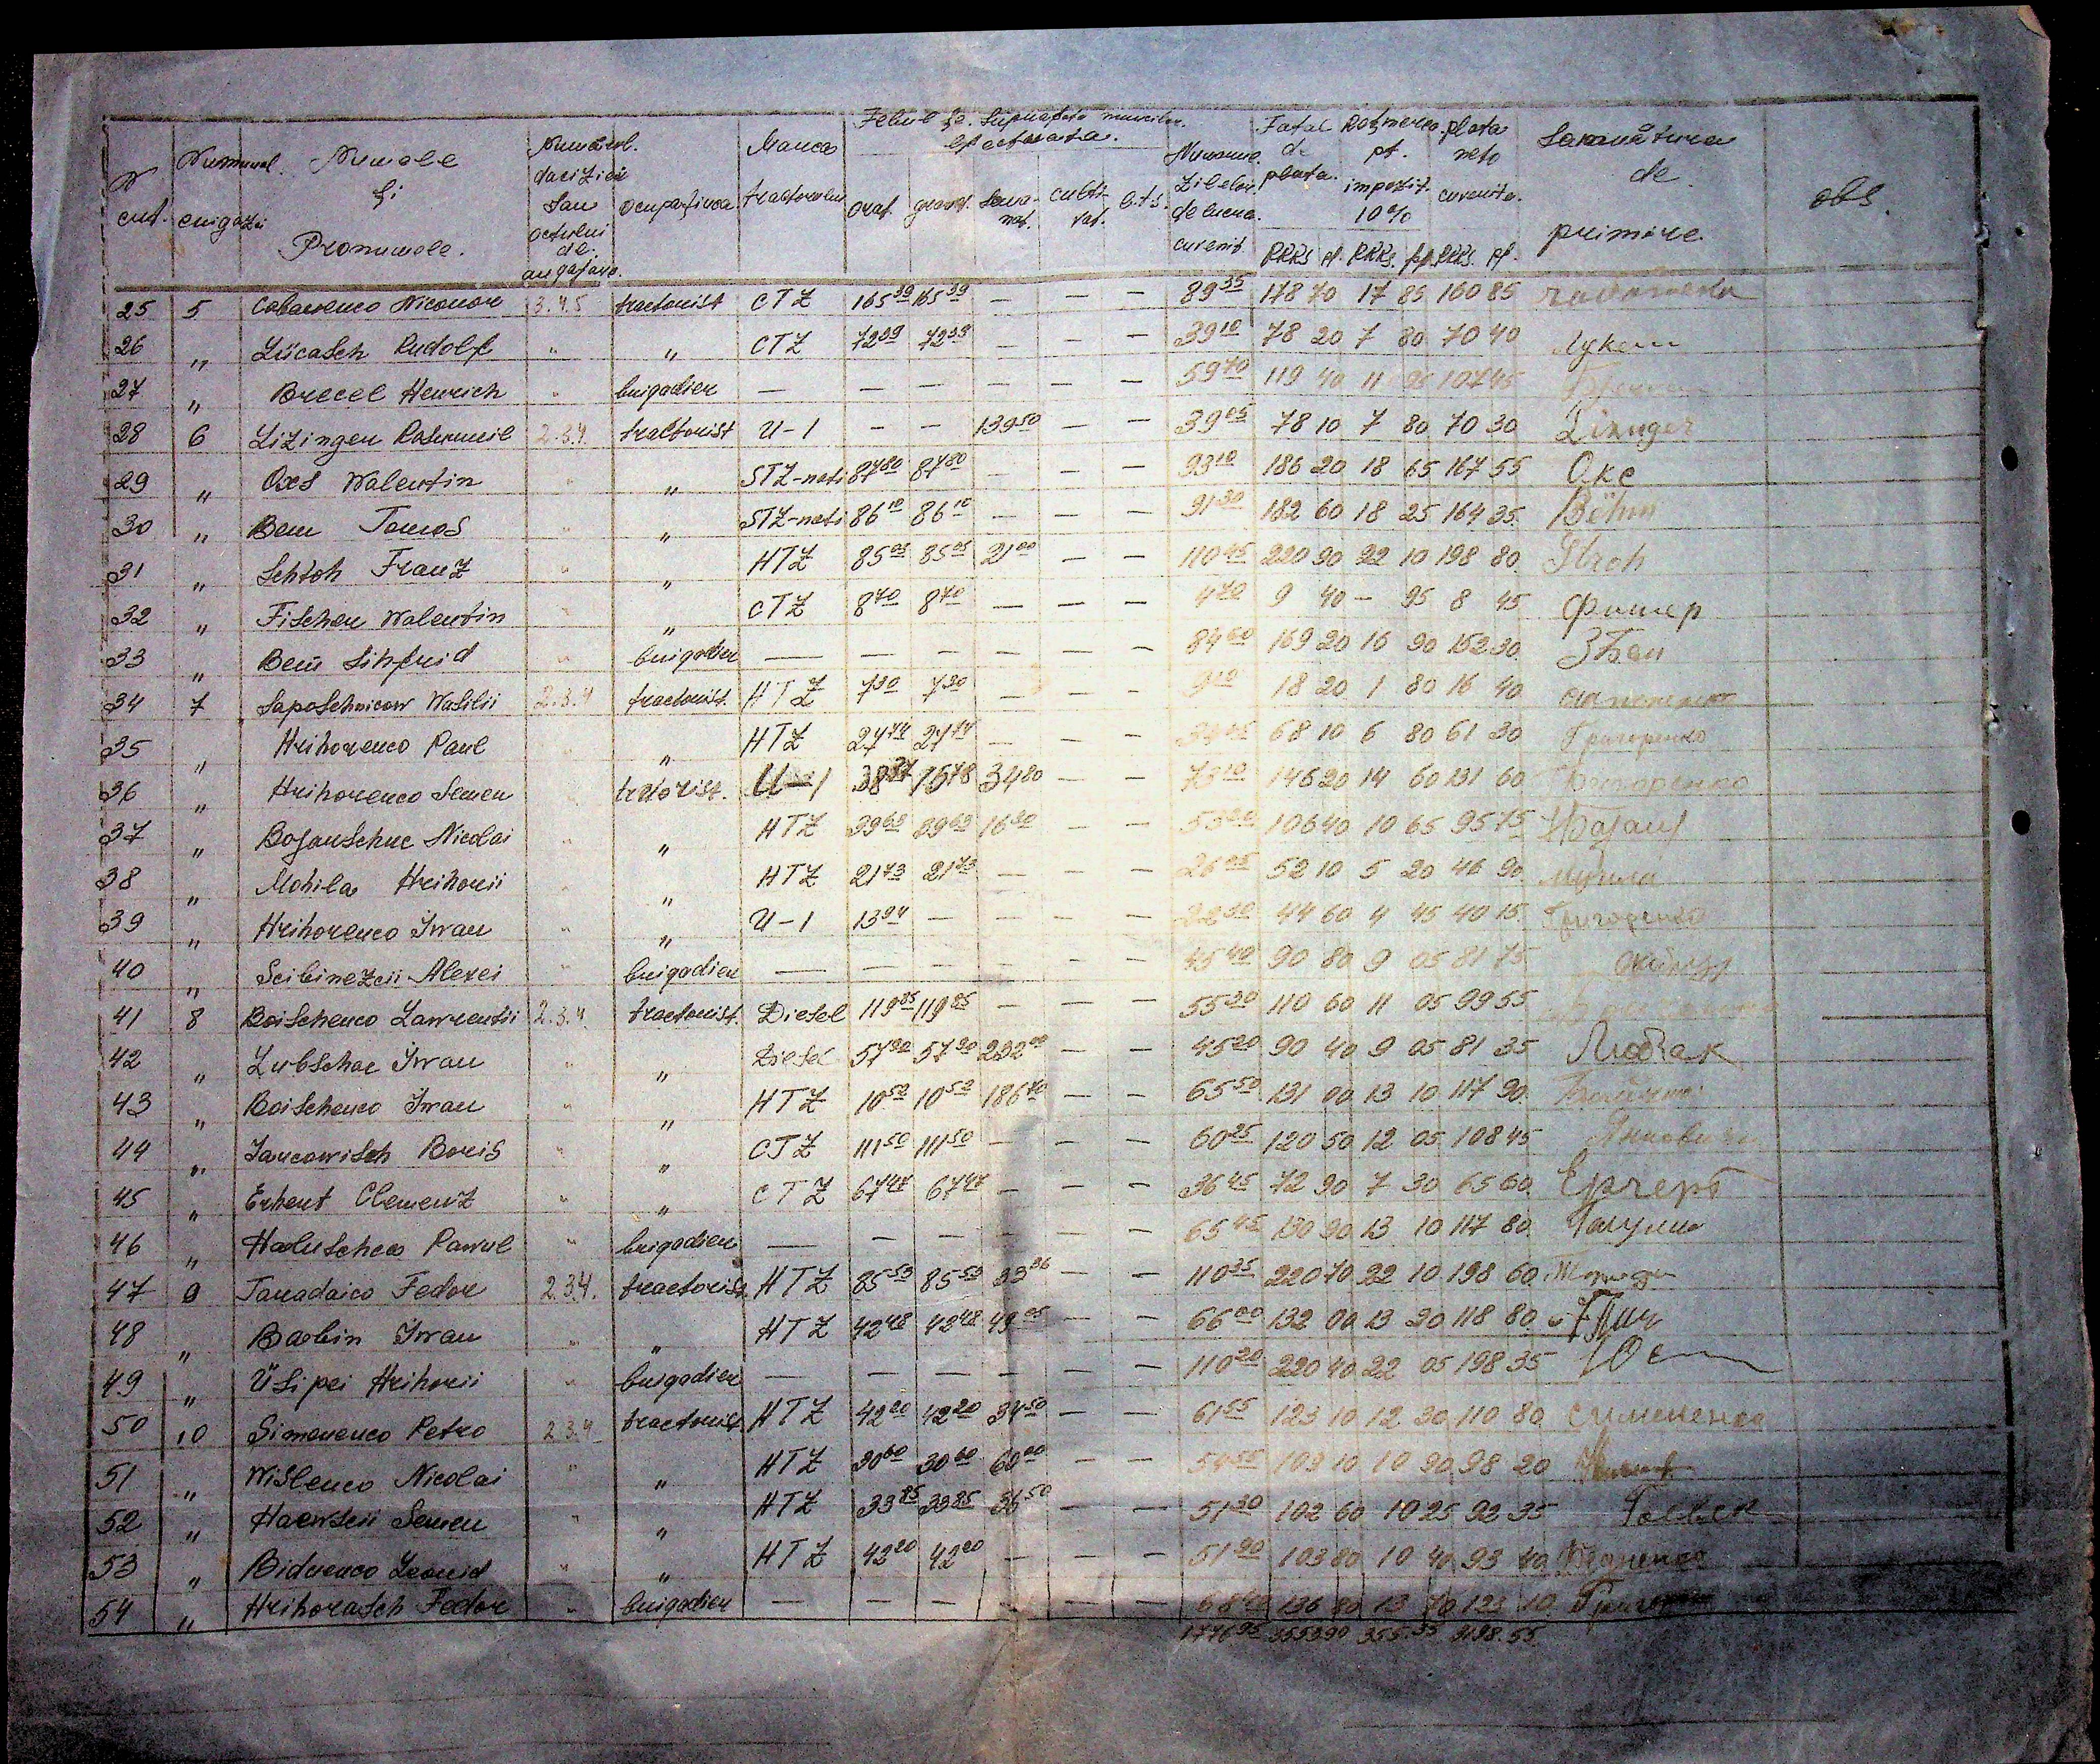 Felul și Suprafata muncilor efectuata.
N crt. Numarul brigazii Numele și Pronumele. Numarul deciziei sau actului de angajare. ocupațiunea Marca tractorului orat. grapat. Sema-nat. culti-vat. Numarul zilelor de lucru cuvenit. Total de plata. RKKS pf. Rețineri pt. impozit. 10% RKKS. pf. plata neto cuvenita. RKKS. pf. Semnătura de primire. obs.
25 5 Cabacenco Niconor 3.4.5 tractorist CTZ 165 39 165 39 — — — 89 35 178 70 17 85 160 85
26 " Lücasch Rudolf " " CTZ 72 39 72 39 — — — 39 10 78 20 7 80 70 40 Лукеш
27 " Brecel Henrich " brigadier — — — — — — 59 70 119 40 11 95 107 45
28 6 Lizinger 2.3.4. tractorist U-1 — — 139 50 — — 39 05 78 10 7 80 70 30 Lizinger
29 " Oxs Walentin " " STZ-nati 87 80 87 80 — — — 93 10 186 20 18 65 167 55 Окс
30 " Bem Tomos " " STZ-nati 86 10 86 10 — — — 91 30 182 60 18 25 164 35 Böhm
31 " Schtoh Franz " " HTZ 85 05 85 05 21 00 — — 110 45 220 90 22 10 198 80 Stroh
32 " Fischer Walentin " " CTZ 8 70 8 70 — — — 4 70 9 40 — 95 8 45 Фишер
33 " Bem Sihfrid " brigadier — — — — — — 84 60 169 20 16 90 152 30 З Бем
34 7 Saposchnicow Wasilii 2.3.4 tractorist. HTZ 7 30 7 30 — — — 9 10 18 20 1 80 16 40
35 " Hrihorenco Paul " " HTZ 27 74 27 74 — — — 34 05 68 10 6 80 61 30 Григоренко
36 " Hrihorenco Semen " tractorist. U-1 38 37 15 78 34 80 — — 73 10 146 20 14 60 131 60 Григоренко
37 " Bojanschuc Nicolai " " HTZ 39 63 39 63 16 20 — — 53 20 106 40 10 65 95 75
38 " Mohila Hrihorii " " HTZ 21 73 21 73 — — — 26 05 52 10 5 20 46 90 Могила
39 " Hrihorenco Iwan " " U-1 13 94 — — — — 22 30 44 60 4 45 40 15 Григоренко
40 " Scibinezcii Alexei " brigadier — — — — — — 45 40 90 80 9 05 81 75
41 8 Boischenco Lawrentii 2.3.4. tractorist. Diesel 119 85 119 85 — — — 55 30 110 60 11 05 99 55
42 " Lubschac Iwan " " Diesel 57 90 57 90 232 00 — — 45 20 90 40 9 05 81 35 Любчак
43 " Boischenco Iwan " " HTZ 10 52 10 52 186 70 — — 65 50 131 00 13 10 117 90
44 " Jancowisch Boris " " CTZ 111 50 111 50 — — — 60 25 120 50 12 05 108 45
45 " Erhert Clemenz " " CTZ 67 47 67 47 — — — 36 45 72 90 7 30 65 60
46 " Haluschca Pawul " brigadier — — — — — — 65 45 130 90 13 10 117 80
47 9 Tanadaico Fedor 2.3.4. tractorist. HTZ 85 53 85 53 33 36 — — 110 35 220 70 22 10 198 60
48 " Babin Iwan " " HTZ 42 48 42 48 49 05 — — 66 00 132 00 13 20 118 80
49 " Üsipei Hrihorii " brigadier — — — — — — 110 20 220 40 22 05 198 35
50 10 Simonenco Petro 2.3.4 tractorist HTZ 42 20 42 20 34 50 — — 61 55 123 10 12 30 110 80 Симоненко
51 " Wislenco Nicolai " " HTZ 30 60 30 60 60 00 — — 54 55 109 10 10 90 98 20
52 " Haewscii Semen " " HTZ 33 85 33 85 36 50 — — 51 30 102 60 10 25 92 35
53 " Bidnenco Leonid " " HTZ 42 20 42 20 — — — 51 90 103 80 10 40 93 40 Бедненко
54 " Hrihorasch Fedor " brigadier — — — — — — 68 40 136 80 13 70 123 10
1776 95 3553 90 355.35 3198.55